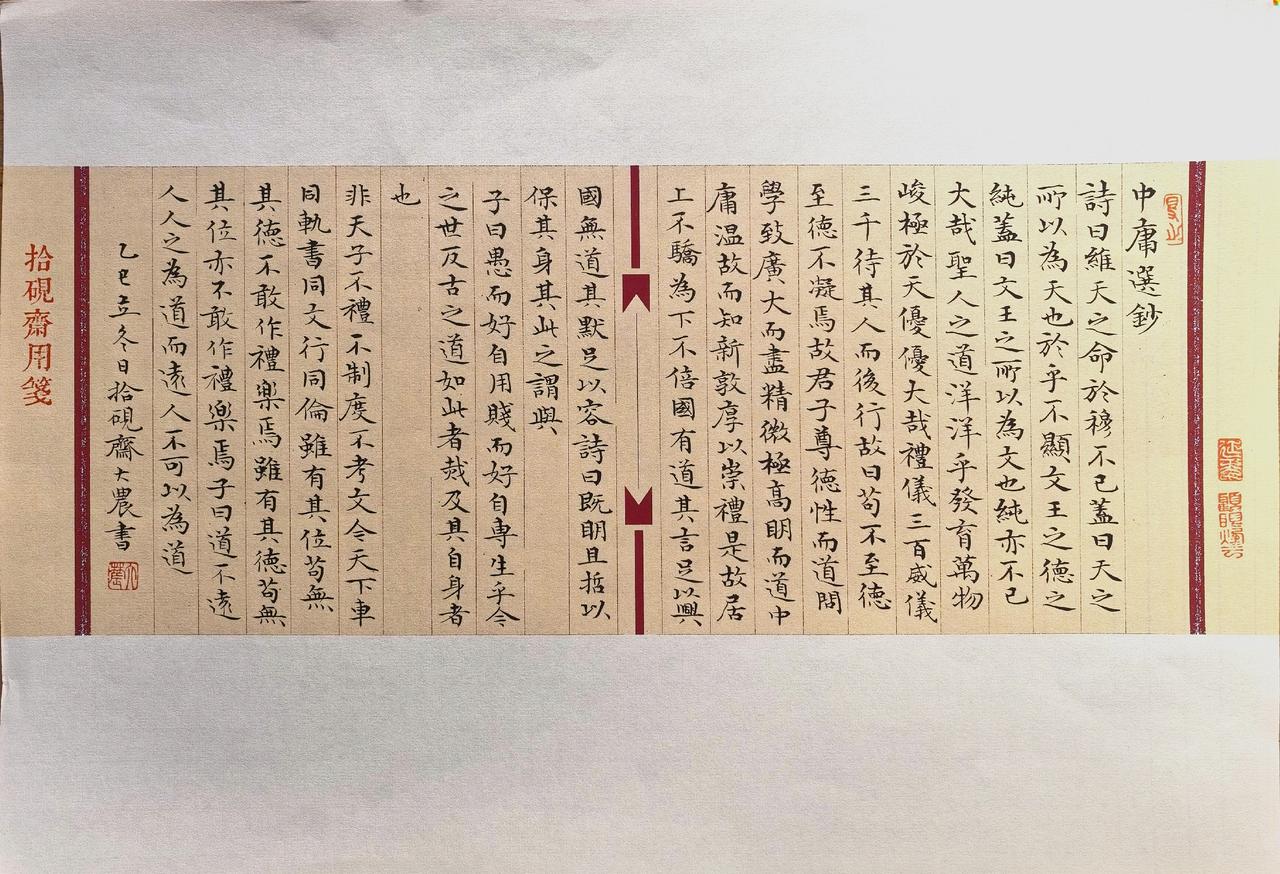 中庸選鈔
詩曰維天之命於穆不已蓋曰天之
所以為天也於乎不顯文王之德之
純蓋曰文王之所以為文也純亦不已
大哉聖人之道洋洋乎發育萬物
峻極於天優優大哉禮儀三百威儀
三千待其人而後行故曰苟不至德
至德不凝焉故君子尊德性而道問
學致廣大而盡精微極高明而道中
庸温故而知新敦厚以崇禮是故居
上不驕為下不倍國有道其言足以興
國無道其默足以容詩曰既明且哲以
保其身其此之謂與
子曰愚而好自用賤而好自專生乎今
之世反古之道如此者烖及其自身者
也
非天子不禮不制度不考文今天下車
同軌書同文行同倫雖有其位苟無
其德不敢作禮樂焉雖有其德苟無
其位亦不敢作禮樂焉子曰道不遠
人人之為道而遠人不可以為道
乙巳立冬日拾硯齋大農書
拾硯齋用箋